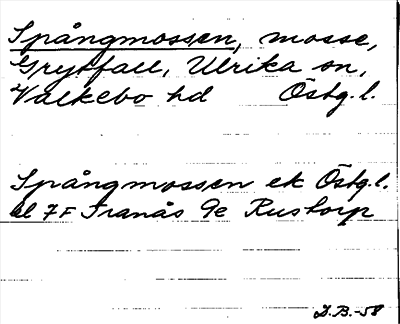 Spångmossen, mosse,
Grytfall, Ulrika sn,
Valkebo hd Östg.l.
Spångmossen ek Östg.l.
bl 7F Tranås 9e Rustorp
D.B.-58